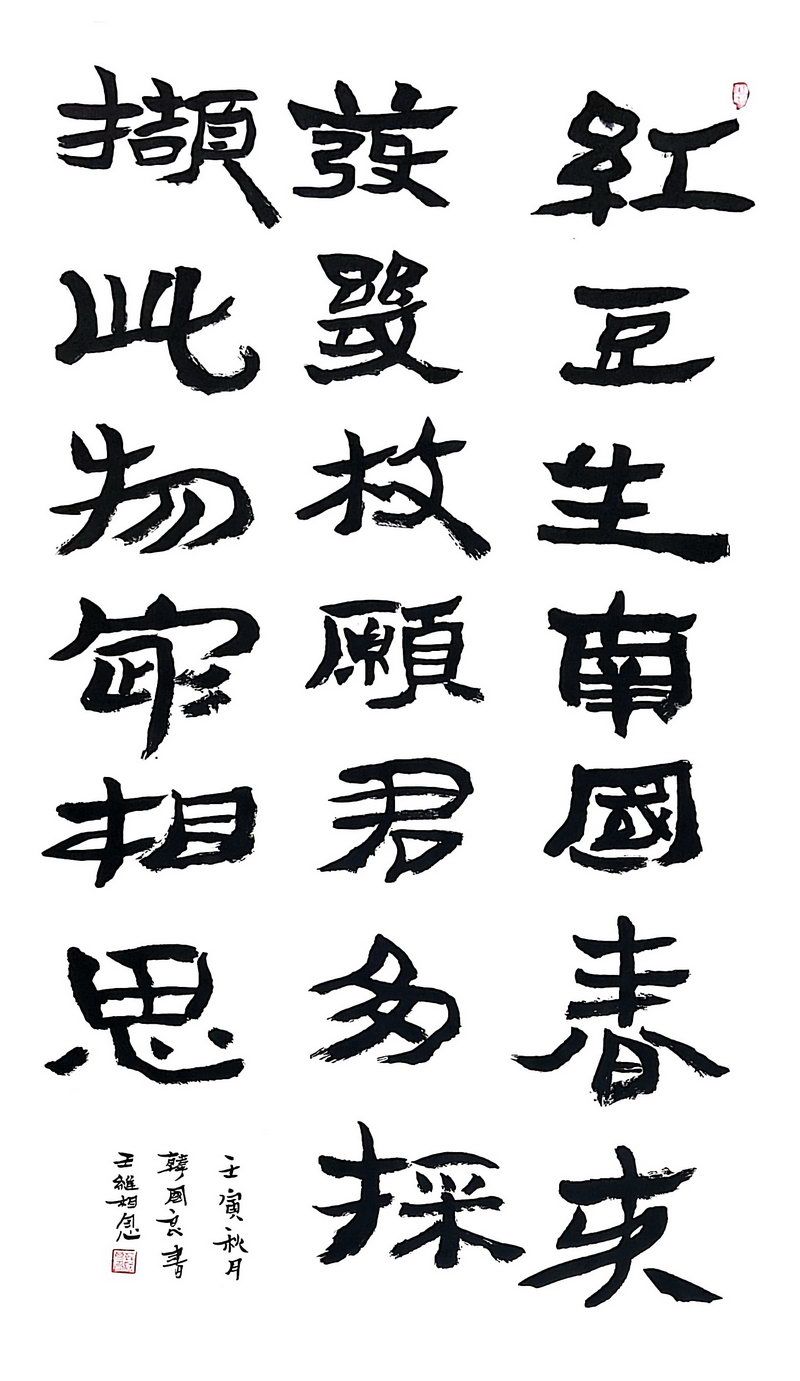 紅豆生南國春来
發幾枝願君多採
擷此物冣相思
壬寅秋月
韓国良書
王維相